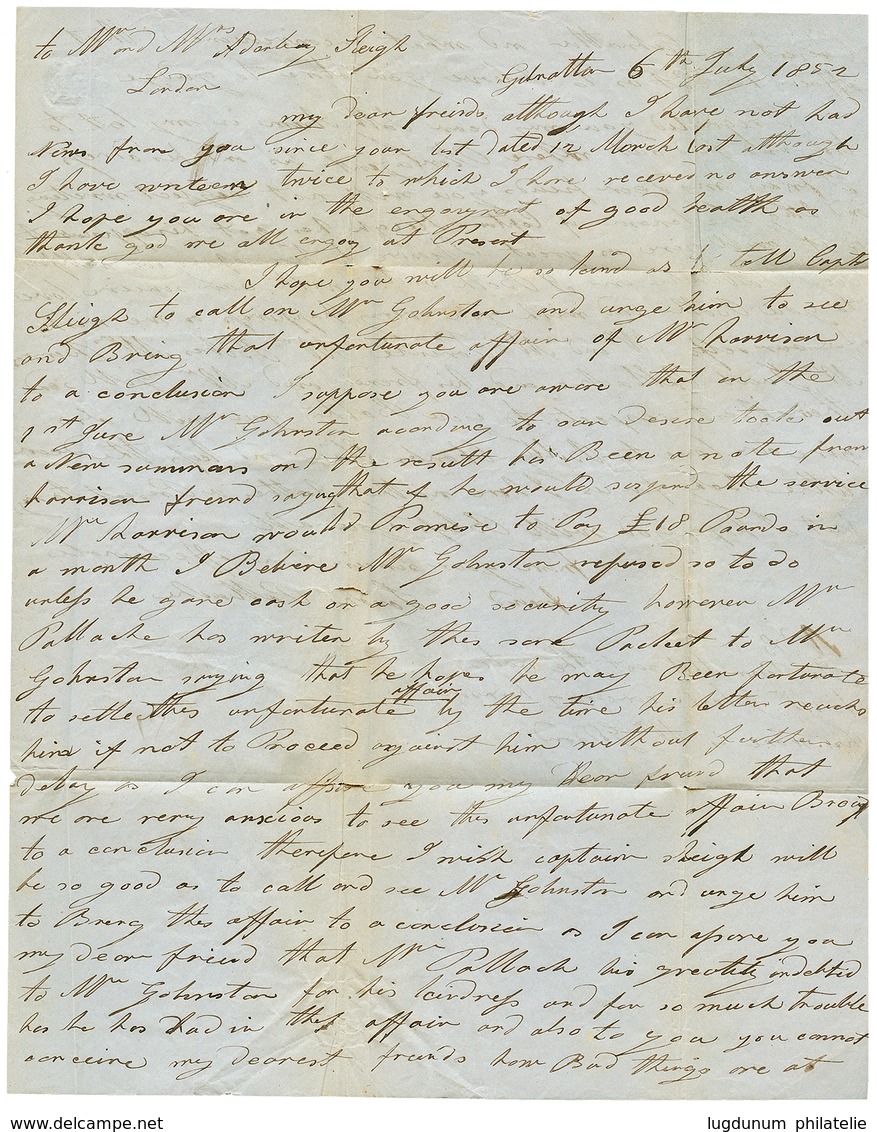 to Mr and Mrs Adderley Sleigh
London
Gibraltar 6th July 1852
my dear freinds although I have not had
News from you since your last dated 12 March last although
I have writeen twice to which I have receved no answer
I hope you are in the engoyment of good health as
thank god we all engoy at Present
I hope you will be so kind as to tell Captn
Sleigh to call on Mr Gohnston and urge him to see
and Bring that unfortunate affair of Mr harrison
to a conclusion I suppose you are aware that on the
1st June Mr Gohnston according to our desire took out
a New summons and the result his Been a note from
harrison freind saying that if he would suspend the service
Mr harrison would Promise to Pay £18 Pounds in
a month I Beleive Mr Gohnston refused so to do
unless he gave cash or a good security however Mr
Pallache has writen by this same Packet to Mr
Gohnston saying that he hopes he may Been fortunate
to settle this unfortunate affair by the time his letter reachs
him if not to Proceed against him without further
delay as I can assure you my Dear freind that
we are very anxious to see this unfortunate affair Broug
to a conclusion therefore I wish captain sleigh will
be so good as to call and see Mr Gohnston and urge him
to Breng this affair to a conclusion as I can assure you
my dear friend that Mr Pallach his greatly indebted
to Mr Gohnston for his kindness and for so much trouble
has he has Had in this affair and also to you you cannot
conceive my dearest freinds how Bad things are at
www.delcampe.net
lugdunum philatelie